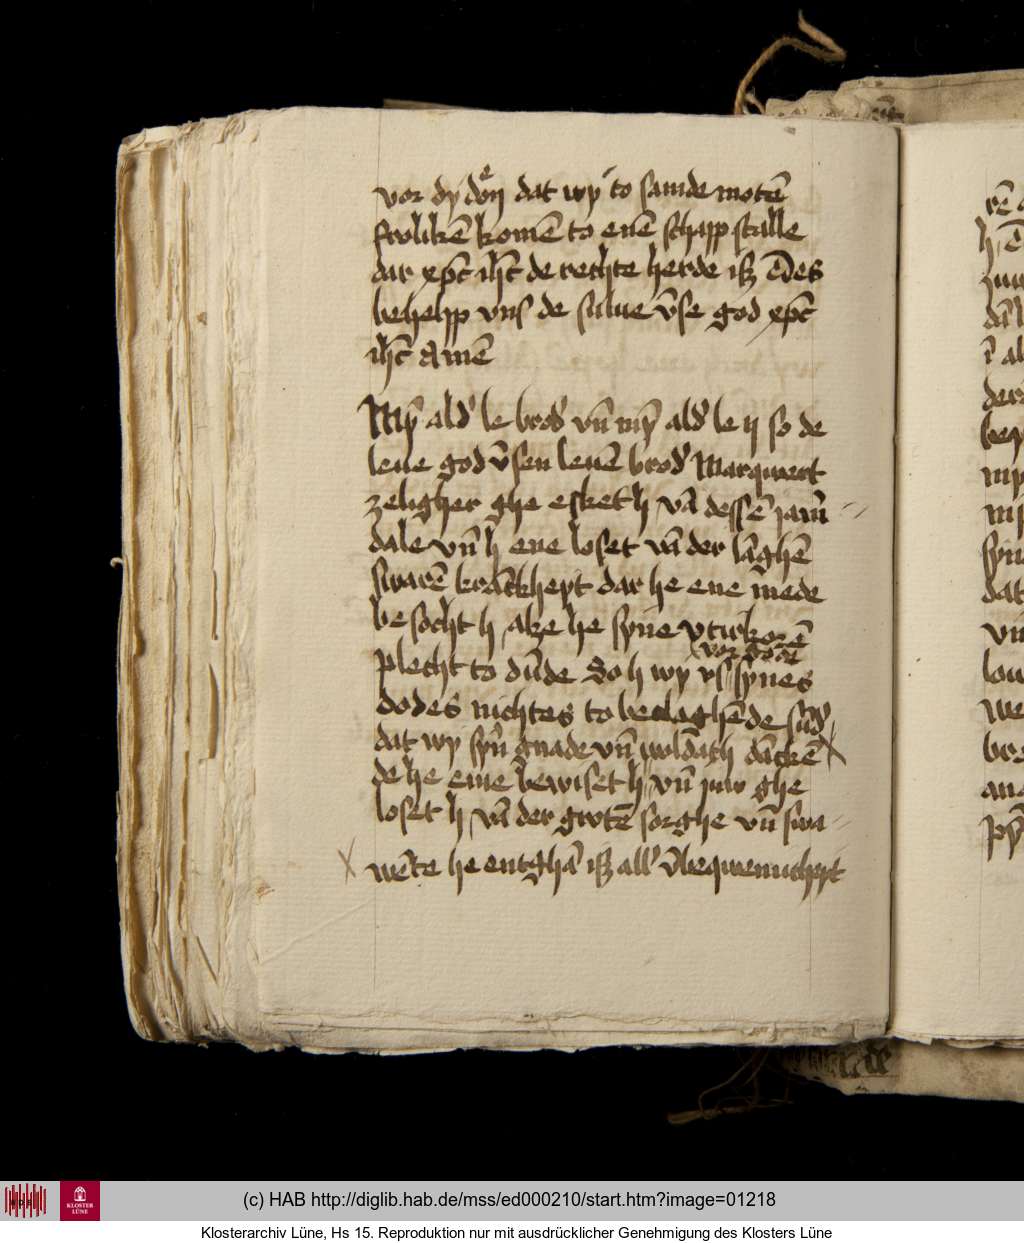 vor dy doͤn dat wy to samde motē
frolikē komē to enē schapp stalle
dar xpc̄ ihc̄ de rechte herde iß Des
behelpp vns de sulue v̄se god xpc̄
ihc̄ Amē
My̅ ald' le brod' vn̄ my̅ ald' le ij so de
leue god v̄sen leuē brod' Marqwert
zeligher ghe esket h vā dessē jam̄
dale vn̄ h ene loset vā der lāghē
swarē krāckheyt dar he ene mede
be socht h alze he syne vtirkorē
vor gode
plecht to dūde So h wy v̄s synes
dodes nichtes to beclaghēde sūd'
dat wy syn̄ gnade vn̄ woldath dāckē
de he eme bewiset h vn̄ juw ghe
loset h vā der grotē sorghe vn̄ swa
wēte he entghā iß all' v̄beqwemicheyt
(c) HAB http://diglib.hab.de/mss/ed000210/start.htm?image=01218
KLOSTER
LÜNE
Klosterarchiv Lüne, Hs 15. Reproduktion nur mit ausdrücklicher Genehmigung des Klosters Lüne